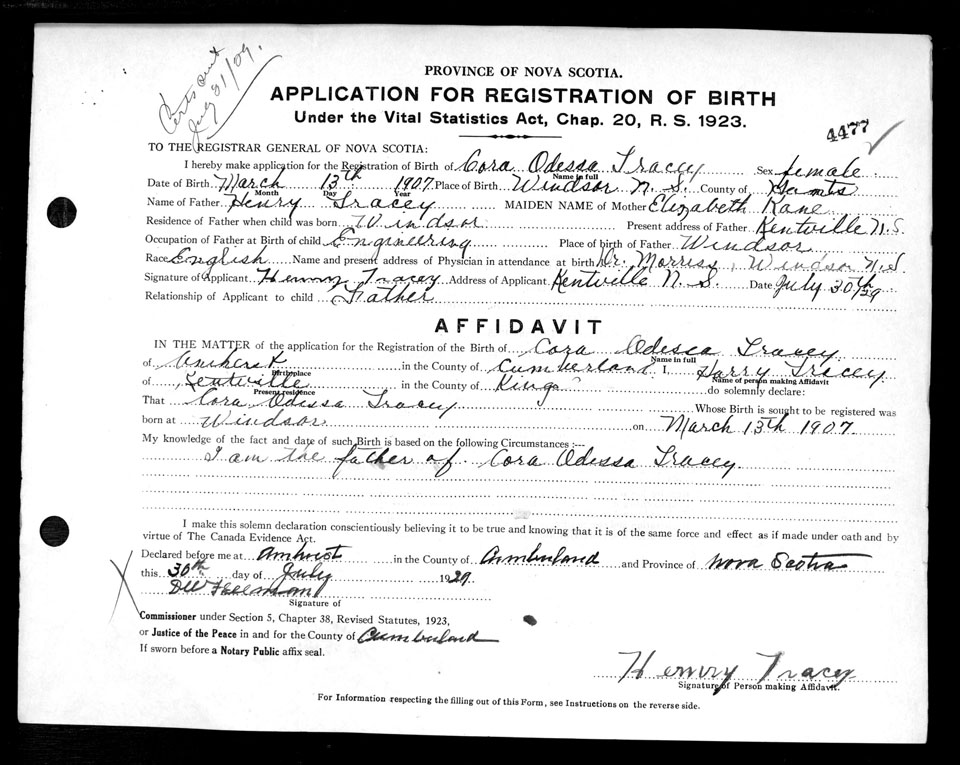 Certs sent
July 31/29.
PROVINCE OF NOVA SCOTIA.
APPLICATION FOR REGISTRATION OF BIRTH
Under the Vital Statistics Act, Chap. 20, R. S. 1923.
4477
TO THE REGISTRAR GENERAL OF NOVA SCOTIA:
I hereby make application for the Registration of Birth of Cora Odessa Tracey Sex female
Name in full
Date of Birth March 13th 1907 Place of Birth Windsor N. S. County of Hants
Month Day Year
Name of Father Henry Tracey MAIDEN NAME of Mother Elizabeth Kane
Residence of Father when child was born Windsor Present address of Father Kentville N. S.
Occupation of Father at Birth of child Engineering Place of birth of Father Windsor
Race English Name and present address of Physician in attendance at birth Dr. Morrisy, Windsor N. S.
Signature of Applicant Henry Tracey Address of Applicant Kentville N. S. Date July 30th/29
Relationship of Applicant to child Father
AFFIDAVIT
IN THE MATTER of the application for the Registration of the Birth of Cora Odessa Tracey
Name in full
of Amherst in the County of Cumberland I, Harry Tracey
Birthplace Name of person making Affidavit
of Kentville in the County of Kings do solemnly declare:
Present residence
That Cora Odessa Tracey Whose Birth is sought to be registered was
born at Windsor on March 13th 1907
My knowledge of the fact and date of such Birth is based on the following Circumstances :—
I am the father of Cora Odessa Tracey.
I make this solemn declaration conscientiously believing it to be true and knowing that it is of the same force and effect as if made under oath and by
virtue of The Canada Evidence Act.
Declared before me at Amherst in the County of Cumberland and Province of Nova Scotia
this 30th day of July 1929
Signature of
Commissioner under Section 5, Chapter 38, Revised Statutes, 1923,
or Justice of the Peace in and for the County of Cumberland
If sworn before a Notary Public affix seal.
Henry Tracey
Signature of Person making Affidavit.
For Information respecting the filling out of this Form, see Instructions on the reverse side.